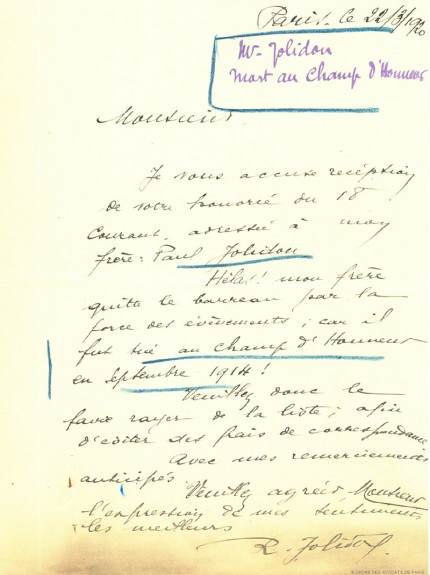 Paris - le 22/3/1920
Mr Jolidon
Mort au Champ d'Honneur
Monsieur
Je vous accuse reception
de votre honorée du 18
Courant, adressée à mon
frère: Paul Jolidon
Hélas! mon frère
quitte le barreau par la
force des évènements; car il
fut tué au Champ d'Honneur
en Septembre 1914!
Veuillez donc le
faire rayer de la liste; afin
d'éviter des frais de correspondance
Avec mes remerciements
anticipés
Veuillez agréer Monsieur
l'expression de mes sentiments
les meilleurs
R. Jolidon
© ORDRE DES AVOCATS DE PARIS